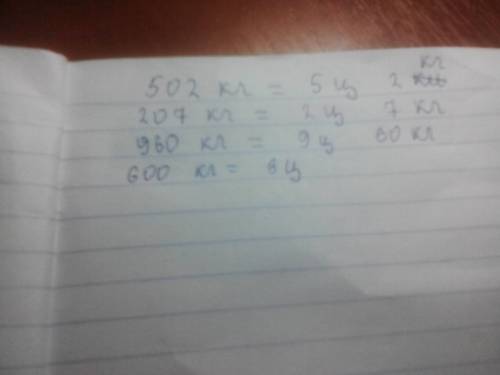 502 кг = 5 ц 2 кг
207 кг = 2 ц 7 кг
960 кг = 9 ц 60 кг
600 кг = 6 ц